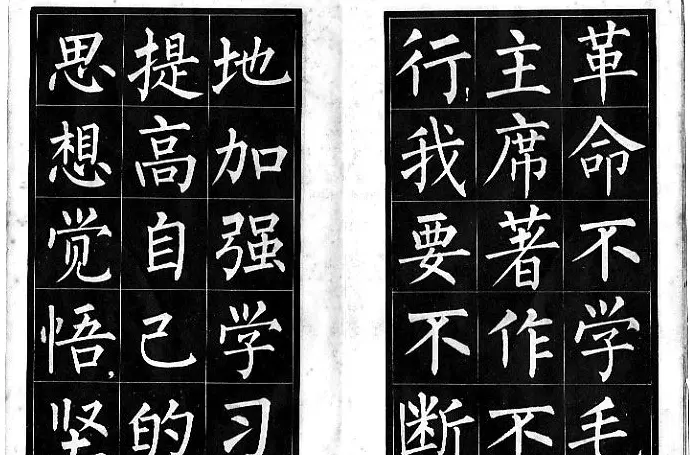 革命不学毛
主席著作不
行,我要不断
地加强学习
提高自己的
思想觉悟,坚